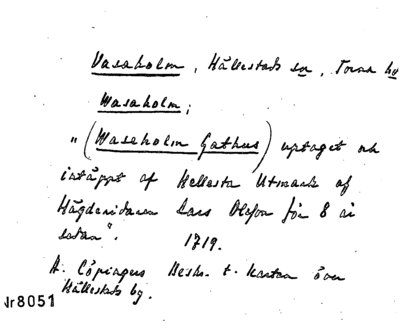 Vasaholm, Hällestads sn, Torna hd
Wasaholm;
"(Wasaholm Gathus) uptaget och
intäppt af Hellesta Utmark af
Lars Olsson för 8 år
sedan". 1719.
A. Cöpingers Beskr. t. Kartan över
Hällestads by.
Nr 8051